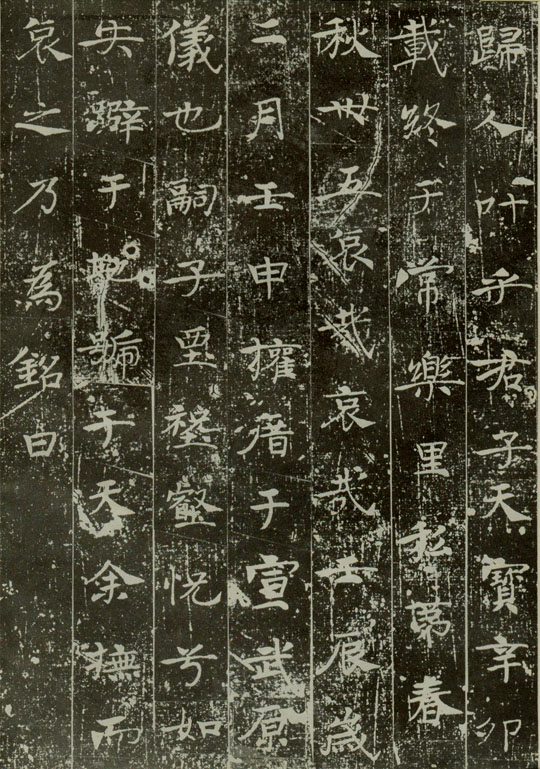 歸人叶乎君子天寶辛卯
載終于常樂里私第春
秋卅五哀哉哀哉壬辰歲
二月壬申權于宣武原
儀也嗣子怳兮如
失躃于地號于天余撫而
哀之乃為銘曰